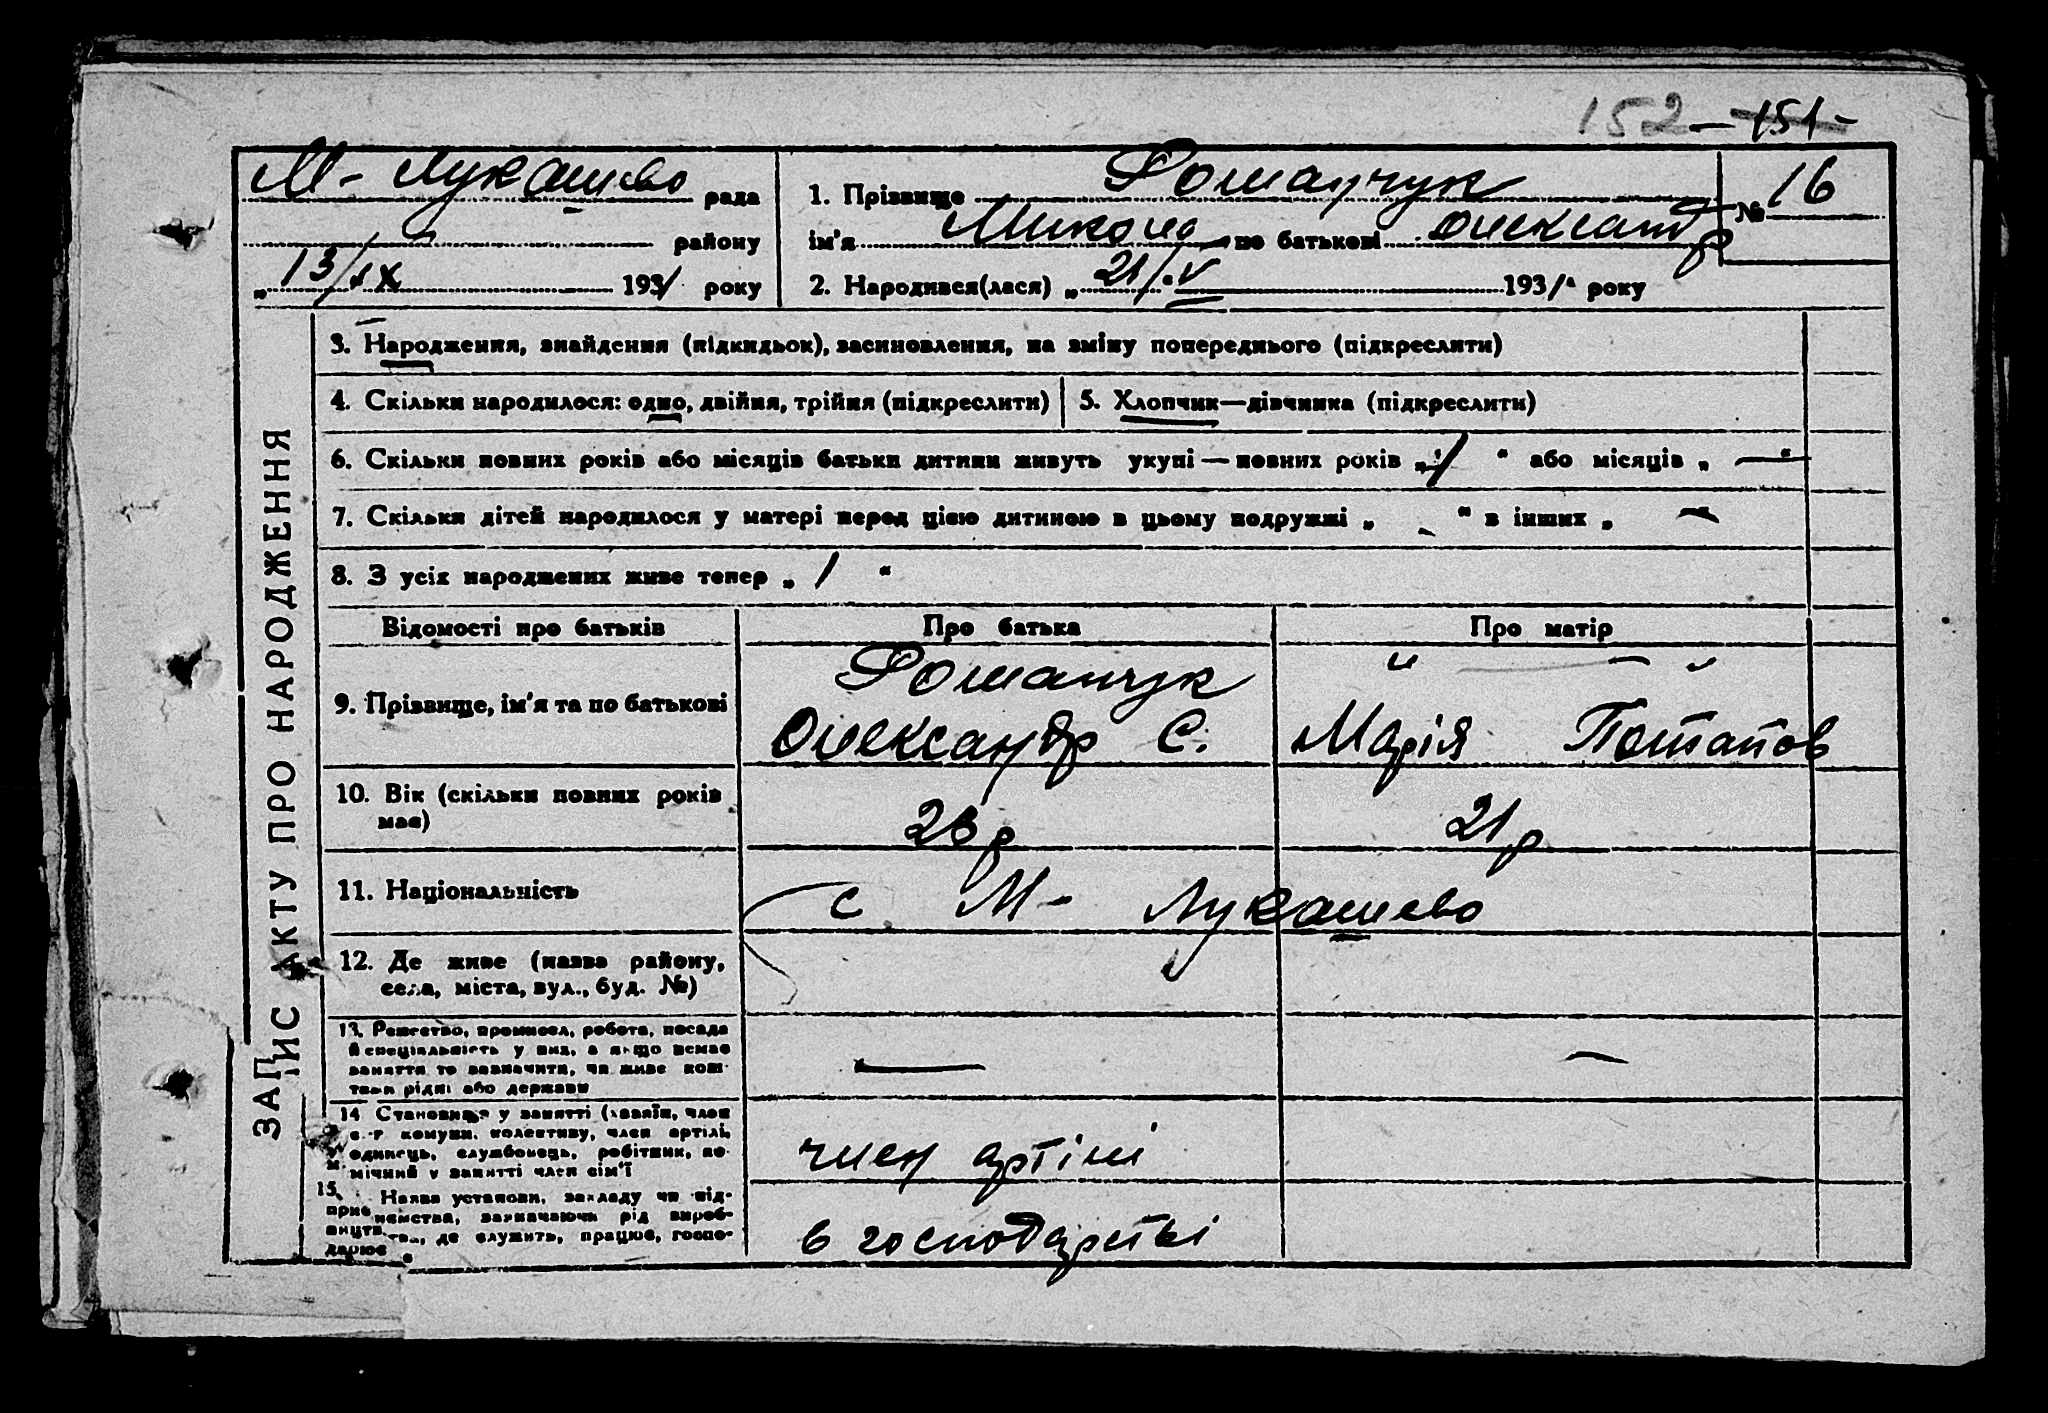 152 – 151 –
М- Лукашево рада
1. Прізвище Романчук
№ 16
району
ім'я Микола по батькові Олександр
„13/ІХ 1931 року
2. Народився(лася) „21/“V 1931 року
ЗАПИС АКТУ ПРО НАРОДЖЕННЯ
3. Народження, знайдення (підкидьок), засиновлення, на зміну попереднього (підкреслити)
4. Скільки народилося: одно, двійня, трійня (підкреслити)
5. Хлопчик—дівчинка (підкреслити)
6. Скільки повних років або місяців батьки дитини живуть укупі — повних років „1“ або місяців „—“
7. Скільки дітей народилося у матері перед цією дитиною в цьому подружжі „-“ в інших „—“
8. З усіх народжених живе тепер „1“
Відомості про батьків
Про батька
Про матір
9. Прізвище, ім'я та по батькові
Романчук
Олександр С.
" — "
Марія Потапов
10. Вік (скільки повних років має)
23 р
21 р
11. Національність
с М- Лукашево
12. Де живе (назва району,
села, міста, вул., буд. №)
13. Ремество, промисел, робота, посада
й спеціяльність у них, а якщо немає
заняття то зазначити, чи живе кош-
тами рідні або держави
—
—
14 Становище у занятті (хазяїн, член
с.-г комуни, колективу, член артілі,
одинець, службовець, робітник, по-
мічний у занятті член сім'ї
член артілі
15. Назва установи, закладу чи під-
приємства, зазначаючи рід вироб-
ництва, де служить, працює, госпо-
дарює
в господарстві